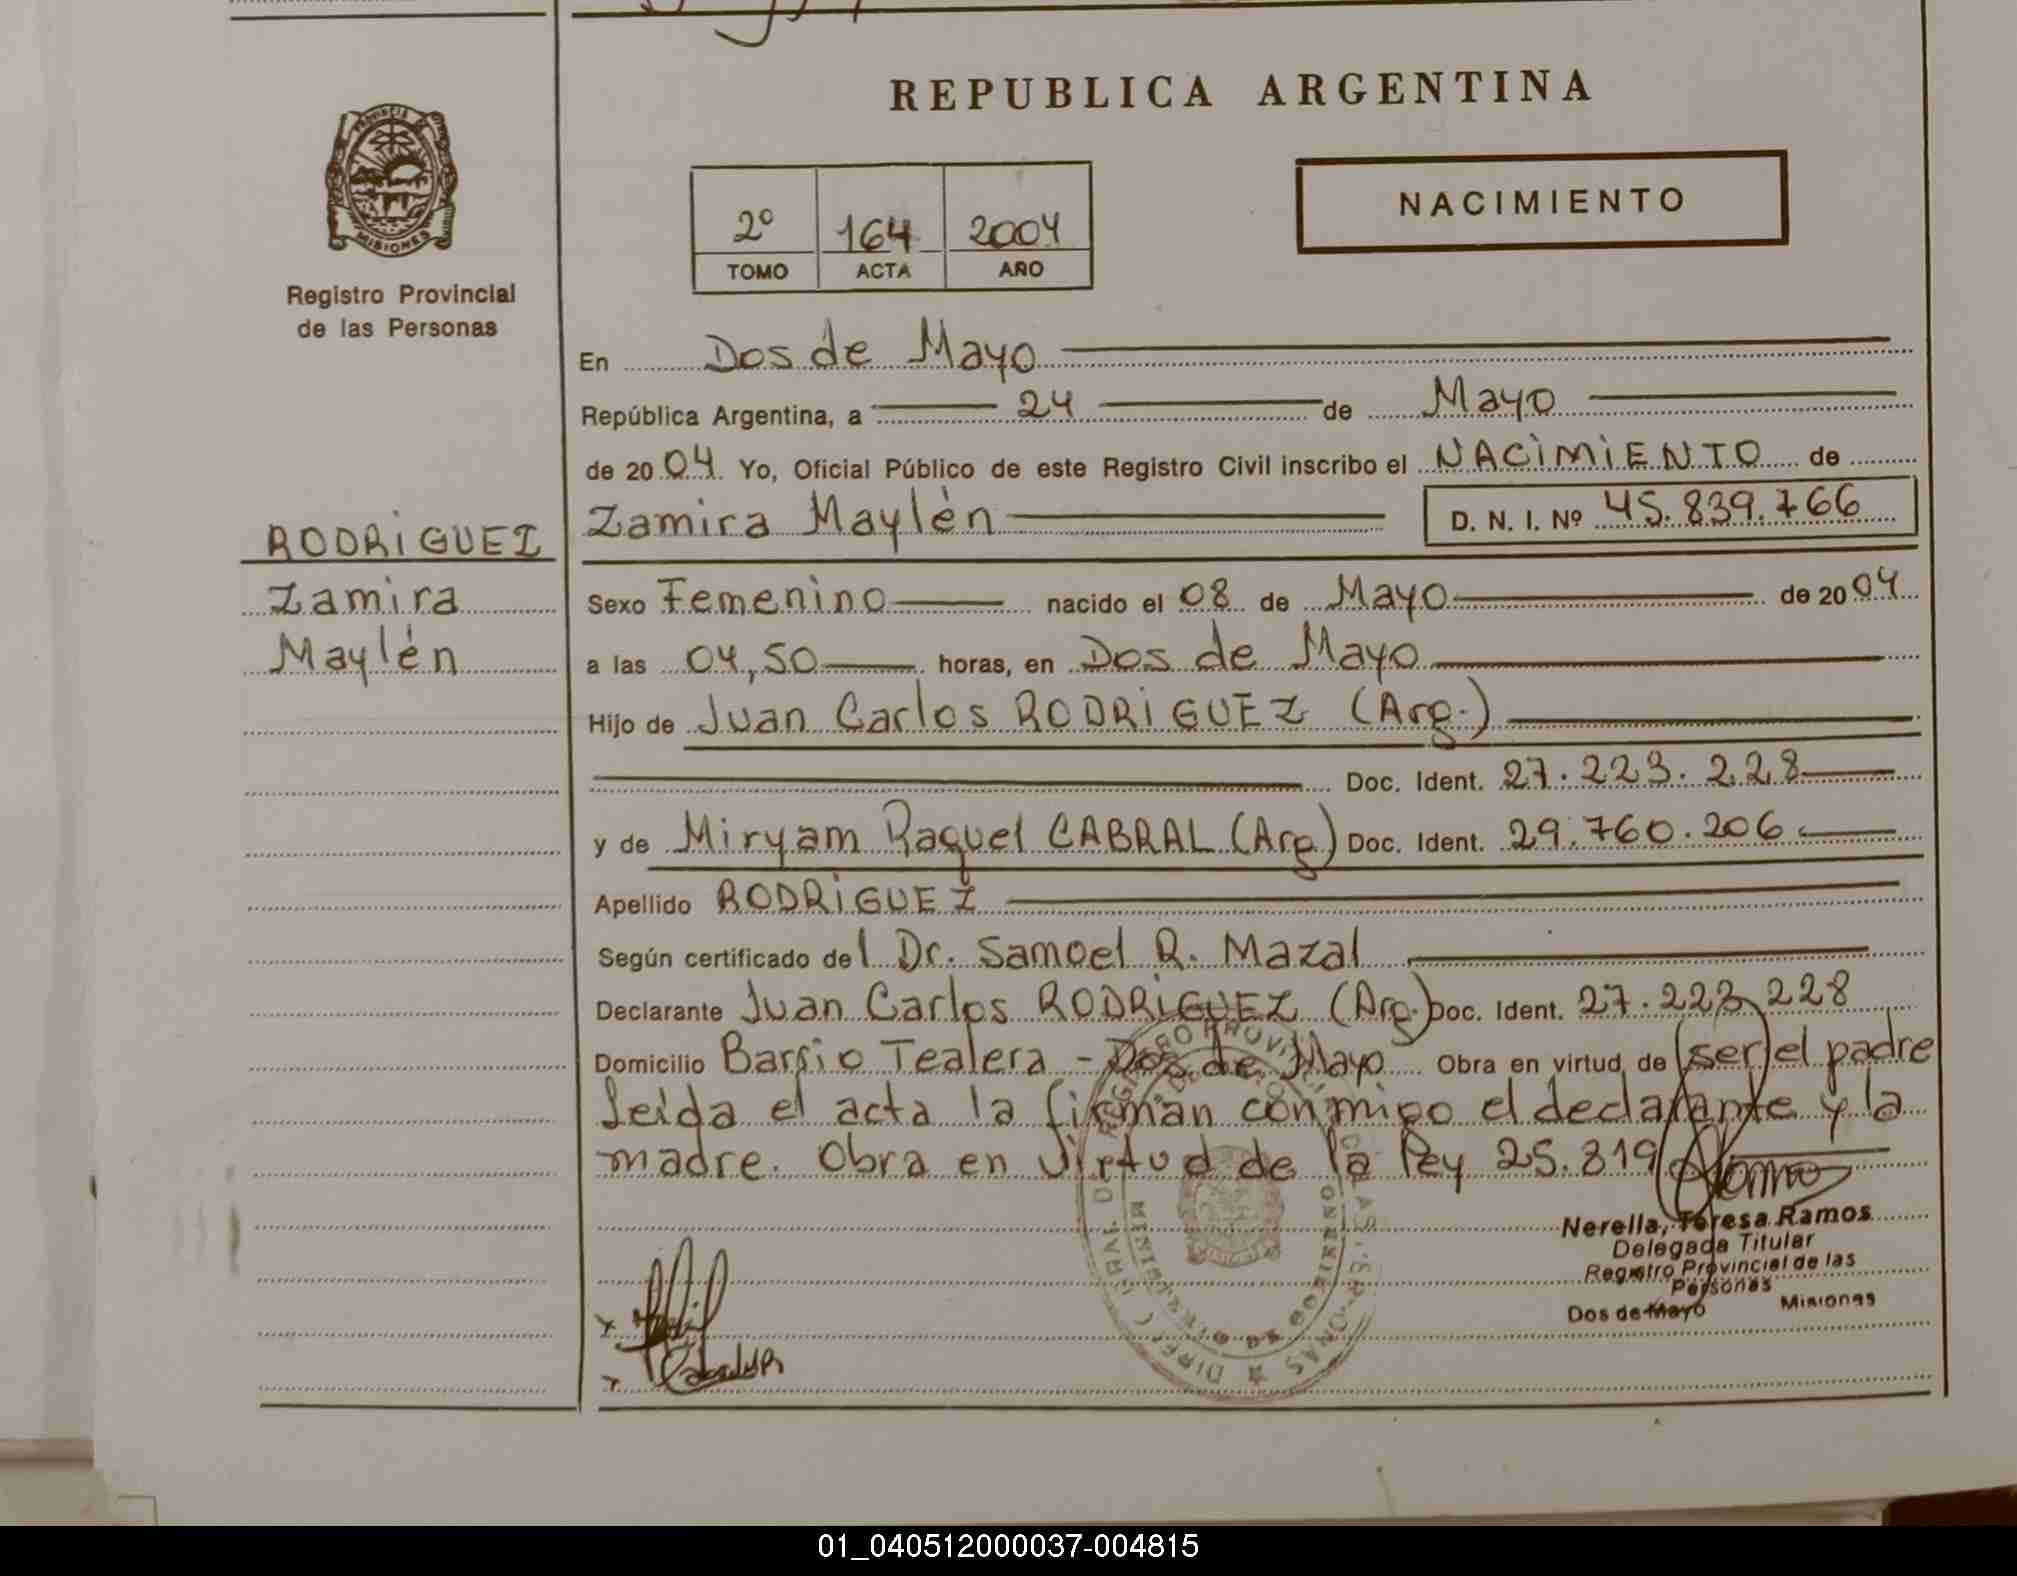 REPUBLICA ARGENTINA
PROVINCIA DE
MISIONES
Registro Provincial
de las Personas
2º 164 2004
TOMO ACTA AÑO
NACIMIENTO
En Dos de Mayo
República Argentina, a 24 de Mayo
de 2004. Yo, Oficial Público de este Registro Civil inscribo el NACIMIENTO de
Zamira Maylén D. N. I. Nº 45.839.766
RODRIGUEZ
Zamira
Maylén
Sexo Femenino nacido el 08 de Mayo de 2004
a las 04,50 horas, en Dos de Mayo
Hijo de Juan Carlos RODRIGUEZ (Arg.)
Doc. Ident. 27.223.228
y de Miryam Raquel CABRAL (Arg) Doc. Ident. 29.760.206
Apellido RODRIGUEZ
Según certificado del Dr. Samoel R. Mazal
Declarante Juan Carlos RODRIGUEZ (Arg.) Doc. Ident. 27.223.228
Domicilio Barrio Tealera - Dos de Mayo Obra en virtud de (ser) el padre
Leida el acta la firman conmigo el declarante y la
madre. Obra en virtud de la Ley 25.819
Nerella, Teresa Ramos
Delegada Titular
Registro Provincial de las
Personas
Dos de Mayo Misiones
01_040512000037-004815